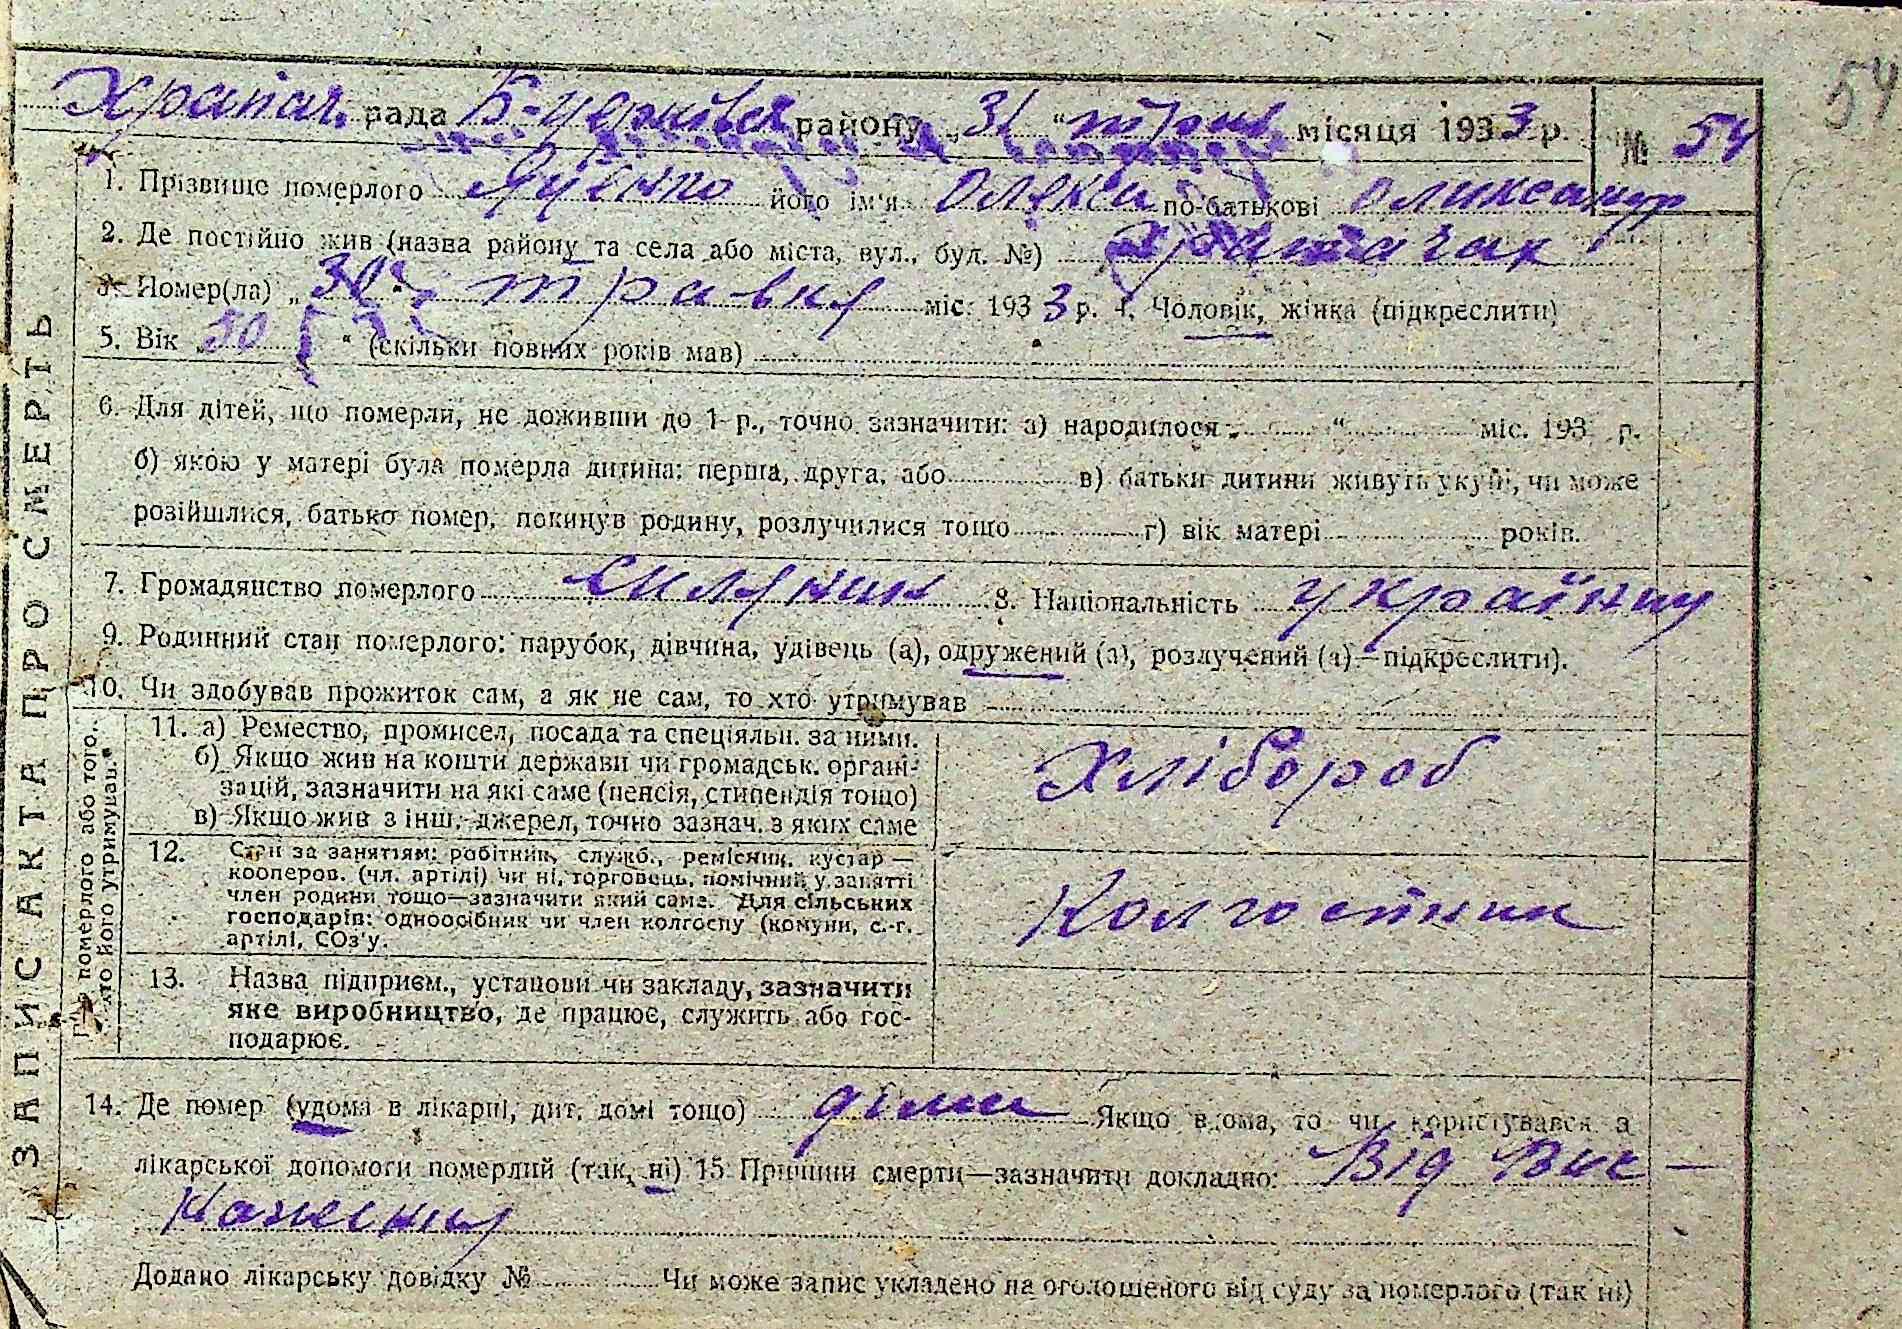 54
Храпач. рада Б-церківск району „31“ травня місяця 1933 р. № 54
1. Прізвище померлого його ім'я Олекса по-батькові Олександр
2. Де постійно жив (назва району та села або міста, вул., буд. №) Храпачах
3. Помер(ла) „30“ травня міс. 1933 р. 4. Чоловік, жінка (підкреслити)
5. Вік „50“ (скільки повних років мав)
6. Для дітей, що померли, не доживши до 1 р., точно зазначити: а) народилося „ “ міс. 193 р.
б) якою у матері була померла дитина: перша, друга, або в) батьки дитини живуть укупі, чи може
розійшлися, батько помер, покинув родину, розлучилися тощо г) вік матері років.
7. Громадянство померлого силянин 8. Національність україниц
9. Родинний стан померлого: парубок, дівчина, удівець (а), одружений (а), розлучений (а)—підкреслити).
10. Чи здобував прожиток сам, а як не сам, то хто утримував
11. а) Ремество, промисел, посада та спеціяльн. за ними.
б) Якщо жив на кошти держави чи громадськ. органі-
зацій, зазначити на які саме (пенсія, стипендія тощо)
в) Якщо жив з інш. джерел, точно зазнач. з яких саме
Хлібороб
12. Стан за заняттям: робітник, служб., ремісник, кустар—
кооперов. (чл. артілі) чи ні, торговець, помічний у занятті
член родини тощо—зазначити який саме. Для сільських
господарів: одноосібник чи член колгоспу (комуни, с.-г.
артілі, СОз'у.
Колгоспник
13. Назва підприєм., установи чи закладу, зазначити
яке виробництво, де працює, служить або гос-
подарює.
померлого або того,
хто його утримував."
14. Де помер (удома в лікарні, дит. домі тощо) діма Якщо вдома, то чи користувався з
лікарської допомоги померлий (так, ні) 15. Причини смерти—зазначити докладно: Від Вис—
Додано лікарську довідку № Чи може запис укладено на оголошеного від суду за померлого (так ні)
ЗАПИС АКТА ПРО СМЕРТЬ